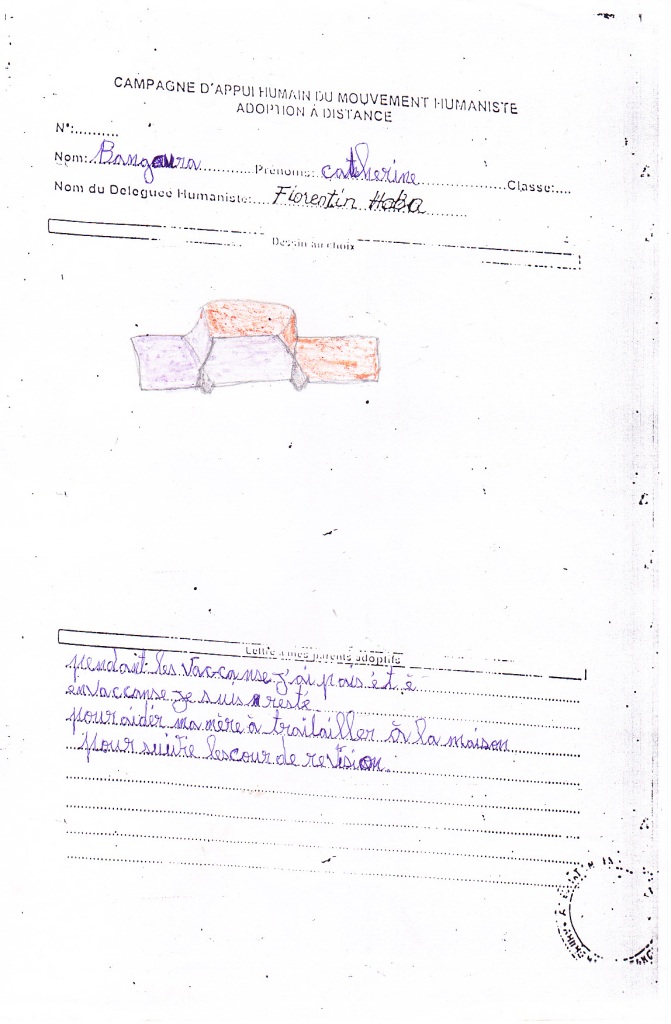 CAMPAGNE D'APPUI HUMAIN DU MOUVEMENT HUMANISTE
ADOPTION À DISTANCE
N°:..........
Nom: Bangoura Prénoms: catherine Classe:....
Nom du Deleguée Humaniste: Florentin Haba
Dessin au choix
Lettre à mes parents adoptifs
pendant les vaccanse j'ai pas été
en vaccanse je suis resté
pour aider ma mère à trailailler à la maison
pour suivre les cour de revision.